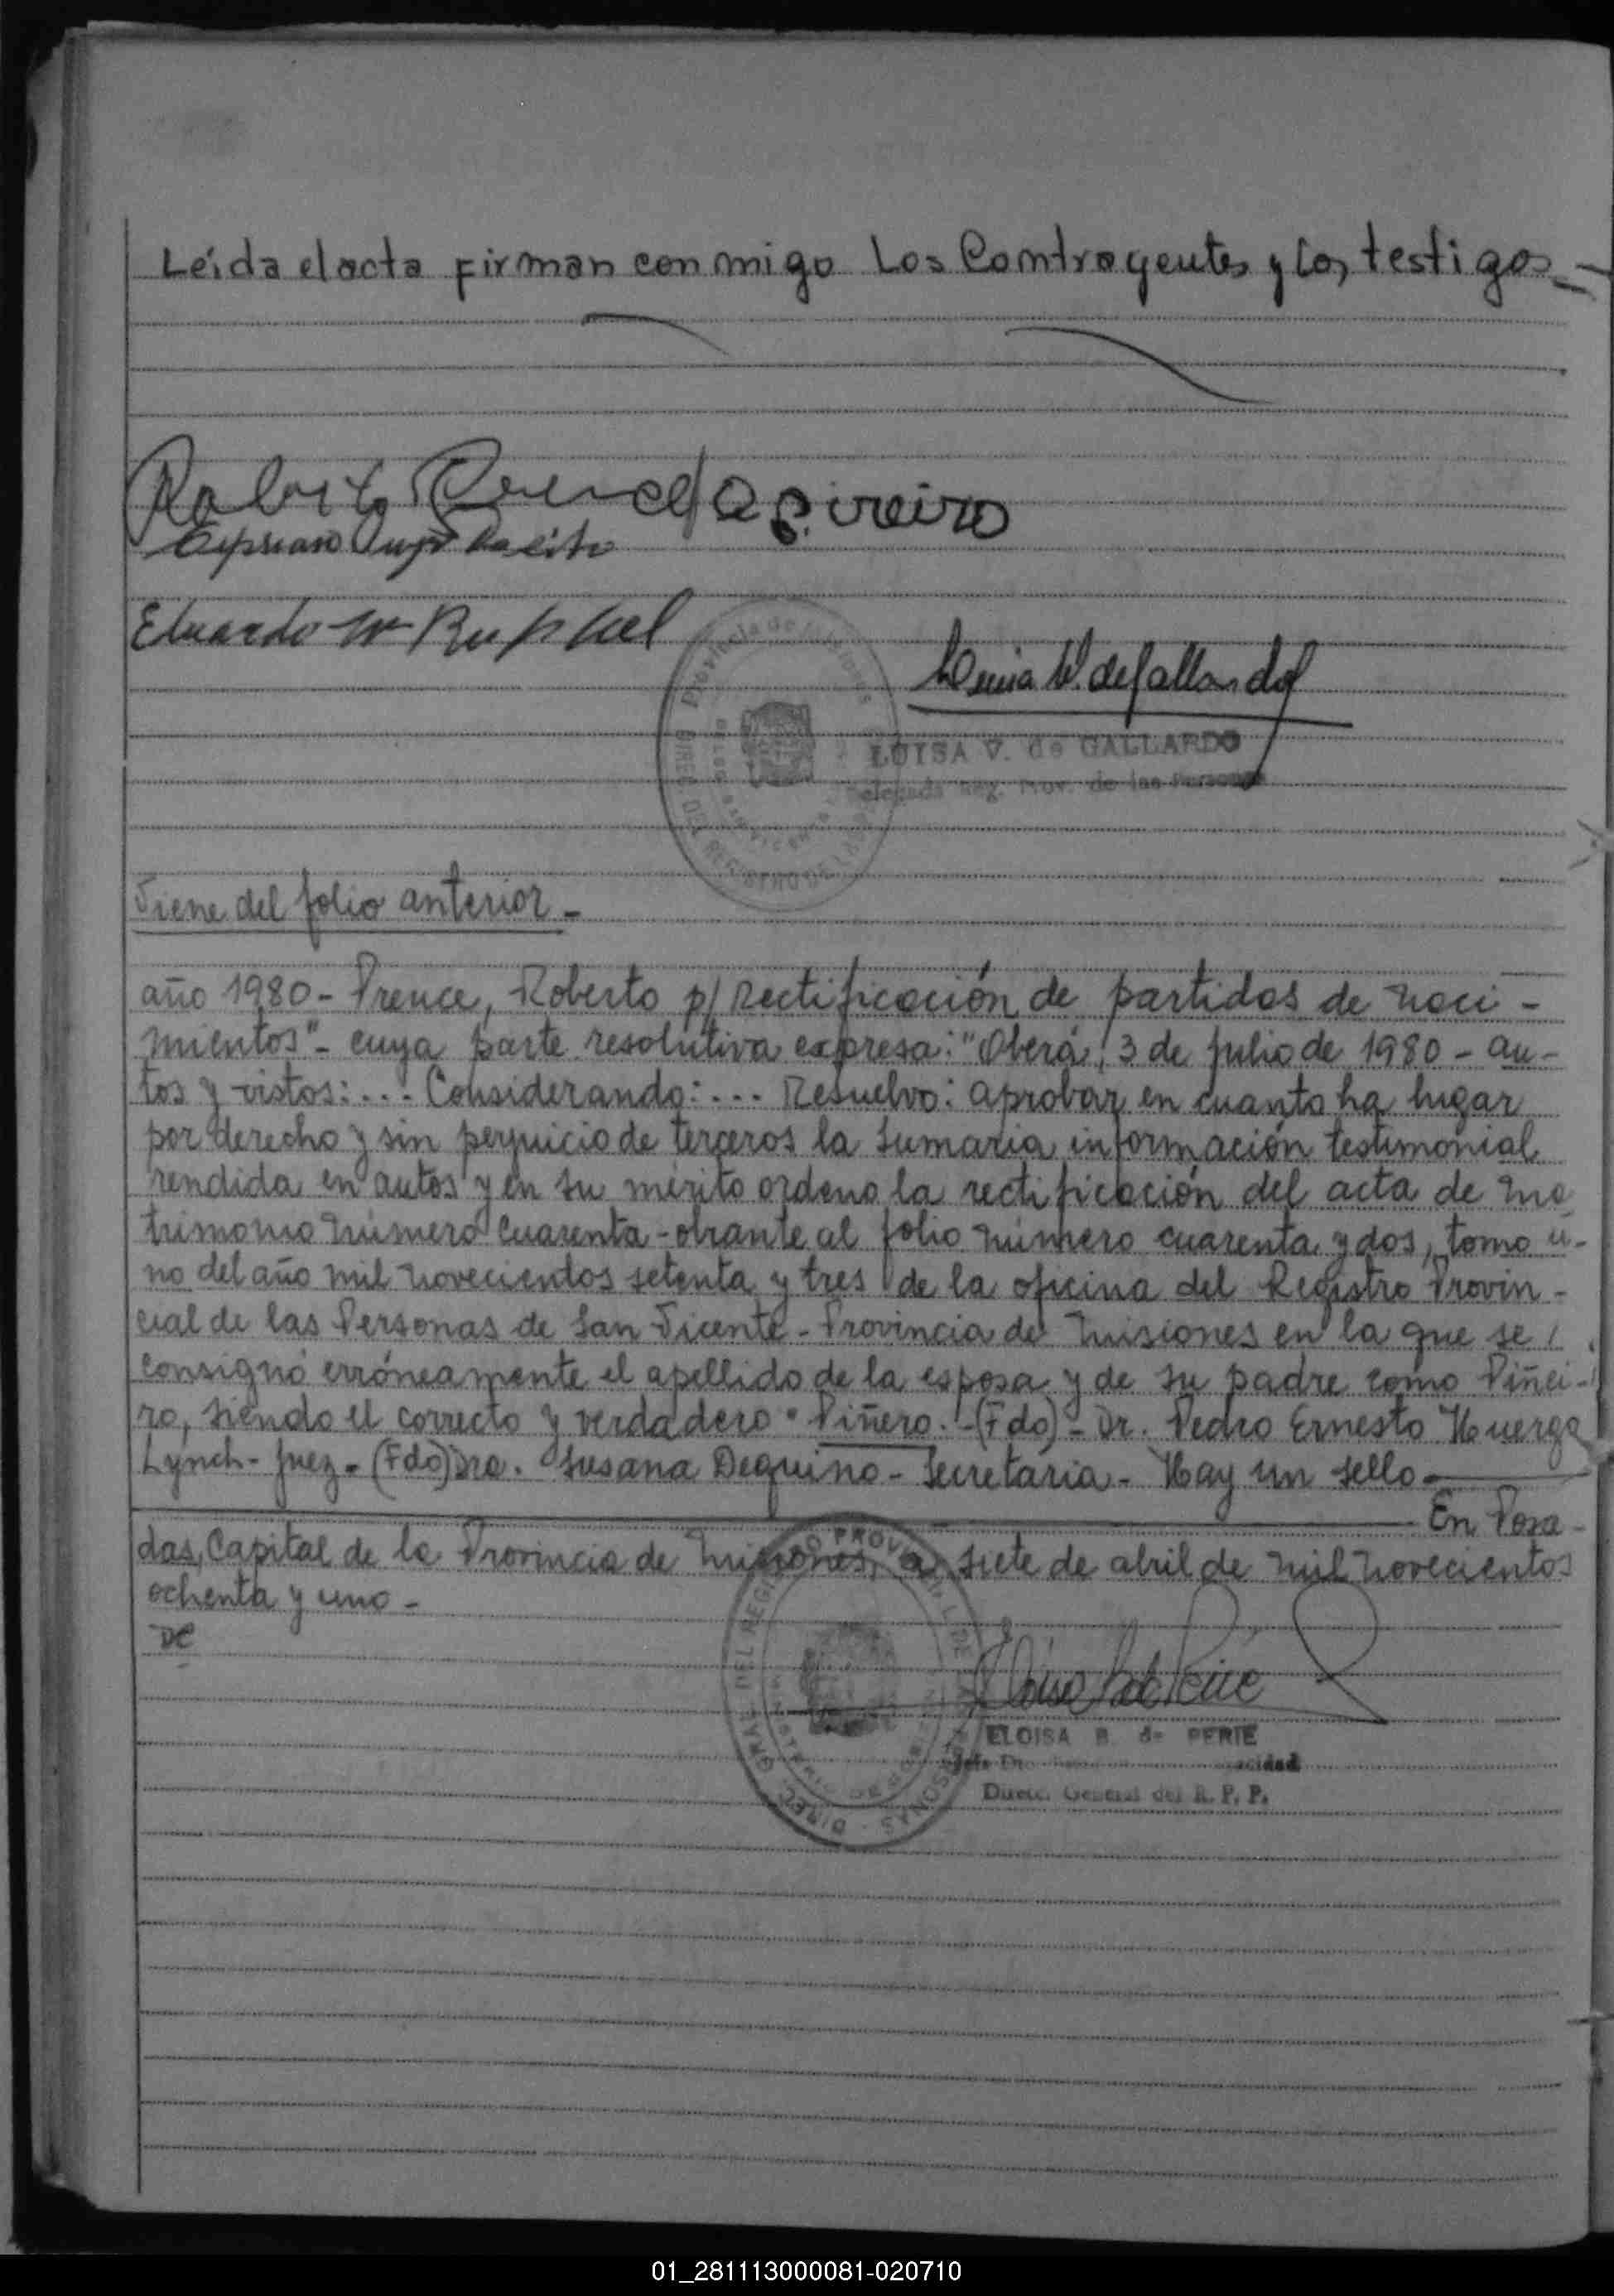 Leída el acta firman conmigo Los Contrayentes y los testigos
Roberto Prence
Eduardo W Ruppel
Luisa V. de Gallardo
LUISA V. de GALLARDO
Delegada Reg. Prov. de las Personas
Viene del folio anterior -
año 1980 - Prence, Roberto p/ Rectificación de partidas de naci -
mientos" - cuya parte resolutiva expresa: "Oberá, 3 de julio de 1980 - au -
tos y vistos: ... Considerando: ... Resuelvo: aprobar en cuanto ha lugar
por derecho y sin perjuicio de terceros la sumaria información testimonial
rendida en autos y en su mérito ordeno la rectificación del acta de ma
trimonio número cuarenta - obrante al folio número cuarenta y dos, tomo u -
no del año mil novecientos setenta y tres de la oficina del Registro Provin -
cial de las Personas de San Vicente - Provincia de Misiones en la que se
consignó erróneamente el apellido de la esposa y de su padre como Piñei -
ro, siendo el correcto y verdadero "Piñero." - (Fdo) - Dr. Pedro Ernesto Huergo
Lynch - Juez - (Fdo) Dra. Susana Dequino - Secretaria - Hay un sello -
En Posa -
das, Capital de la Provincia de Misiones, a siete de abril de mil novecientos
ochenta y uno -
DC
ELOISA B. de PERIE
Direcc. General del R. P. P.
01_281113000081-020710